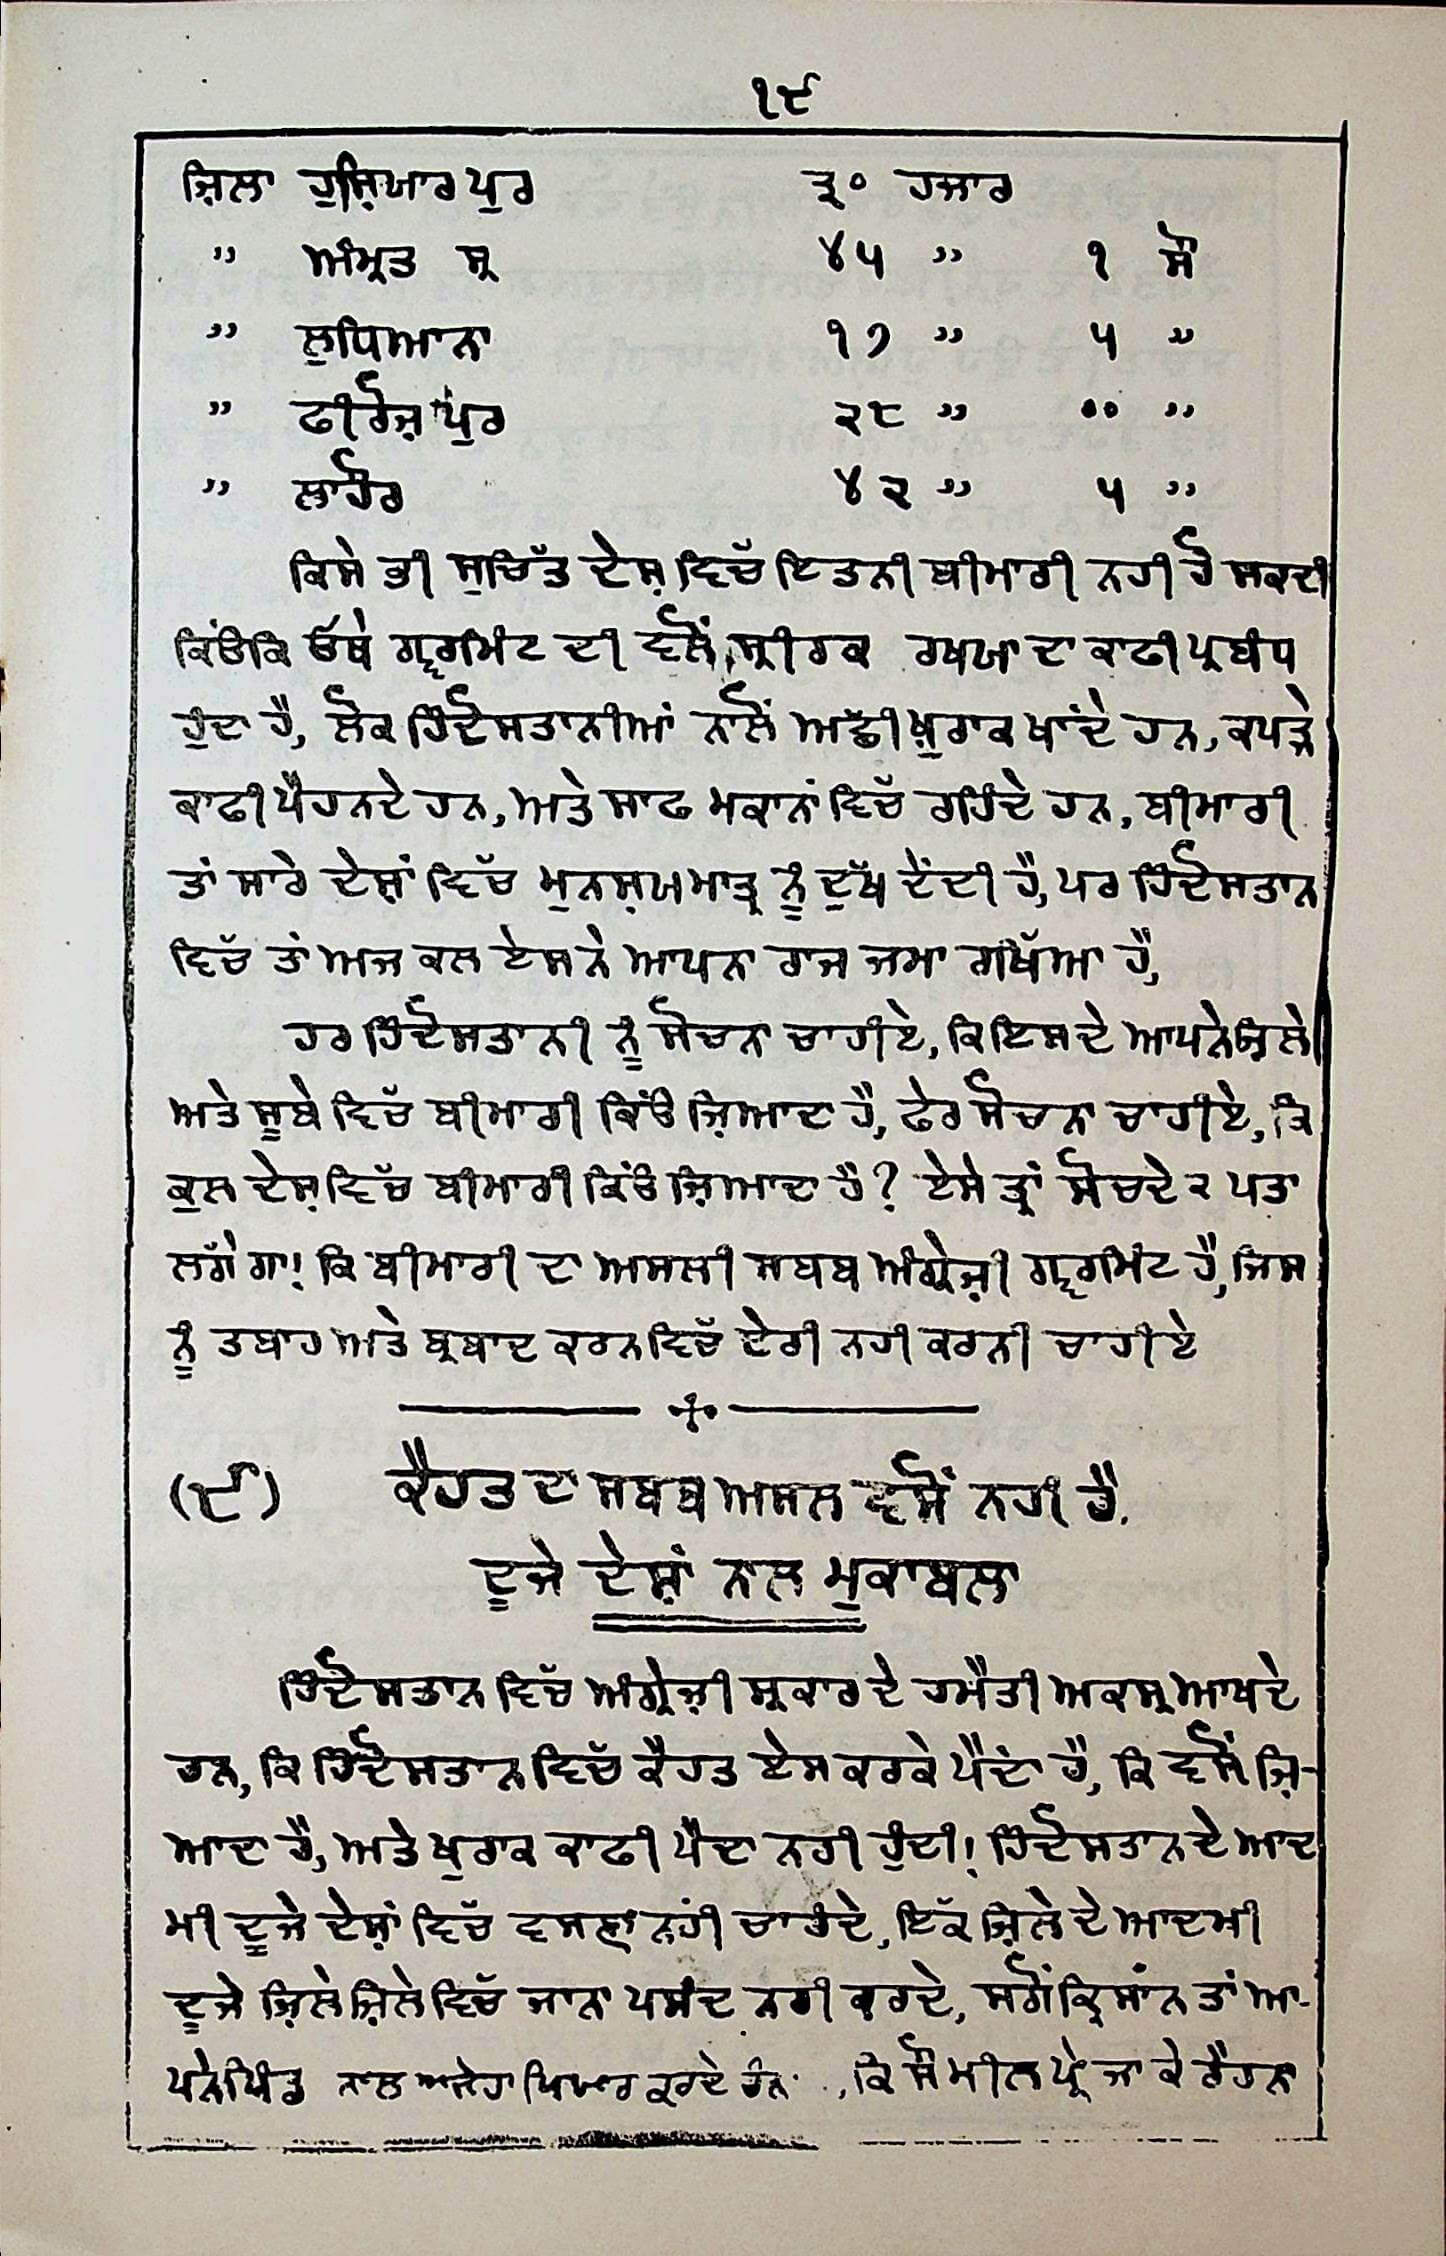 ੧੯
ਜ਼ਿਲਾ ਹੁਸ਼ਿਯਾਰ ਪੁਰ ੩੦ ਹਜਾਰ
” ਅੰਮ੍ਰਤ ਸ੍ਰ ੪੫ ” ੧ ਸੌ
” ਲੁਧਿਆਨਾ ੧੭ ” ੫ ”
” ਫੀਰੋਜ਼ ਪੁਰ ੨੮ ” ੦੦ ”
” ਲਾਹੌਰ ੪੨ ” ੫ ”
ਕਿਸੇ ਭੀ ਸੁਚਿੱਤ ਦੇਸ਼ ਵਿਚੱ ਇਤਨੀ ਬੀਮਾਰੀ ਨਹੀ ਹੋ ਸਕਦੀ
ਕਿਂਉਕਿ ਓਥੇ ਗ੍ਵਰਮਿੰਟ ਦੀ ਵਲੋਂ ਸ੍ਰੀਰਕ ਰਖਯਾ ਦਾ ਕਾਫੀ ਪ੍ਰਬੰਧ
ਹੁੰਦਾ ਹੈ, ਲੋਕ ਹਿੰਦੋਸਤਾਨੀਆਂ ਨਾਲੋਂ ਅਛੀ ਖ਼ੁਰਾਕ ਖਾਂਦੇ ਹਨ, ਕਪੜੇ
ਕਾਫੀ ਪੈਹਨਦੇ ਹਨ, ਅਤੇ ਸਾਫ ਮਕਾਨਾਂ ਵਿਚੱ ਰਹਿੰਦੇ ਹਨ, ਬੀਮਾਰੀ
ਤਾਂ ਸਾਰੇ ਦੇਸ਼ਾਂ ਵਿਚੱ ਮੁਨਸ਼ਯਮਾਤ੍ਰ ਨੂੰ ਦੁੱਖ ਦੇਂਦੀ ਹੈ, ਪਰ ਹਿੰਦੋਸਤਾਨ
ਵਿਚੱ ਤਾਂ ਅਜ ਕਲ ਏਸ ਨੇ ਆਪਨਾ ਰਾਜ ਜਮਾ ਰਖਿੱਆ ਹੈ,
ਹਰ ਹਿੰਦੋਸਤਾਨੀ ਨੂੰ ਸੋਚਨਾ ਚਾਹੀਏ, ਕਿ ਇਸ ਦੇ ਆਪਨੇ ਜ਼ਿਲੇ
ਅਤੇ ਸੂਬੇ ਵਿਚੱ ਬੀਮਾਰੀ ਕਿਂਉ ਜ਼ਿਆਦਾ ਹੈ, ਫੇਰ ਸੋਚਨਾ ਚਾਹੀਏ, ਕਿ
ਕੁਲ ਦੇਸ਼ ਵਿਚੱ ਬੀਮਾਰੀ ਕਿਂਉ ਜ਼ਿਆਦਾ ਹੈ? ਏਸੇ ਤ੍ਰਾਂ ਸੋਚਦੇ ੨ ਪਤਾ
ਲਗੇੱ ਗਾ! ਕਿ ਬੀਮਾਰੀ ਦਾ ਅਸਲੀ ਸਬਬ ਅੰਗ੍ਰੇਜ਼ੀ ਗ੍ਵਰਮਿੰਟ ਹੈ, ਜਿਸ
ਨੂੰ ਤਬਾਹ ਅਤੇ ਬ੍ਰਬਾਦ ਕਰਨ ਵਿਚੱ ਦੇਰੀ ਨਹੀ ਕਰਨੀ ਚਾਹੀਏ
(੯) ਕੈਹਤ ਦਾ ਸਬਬ ਅਸਲ ਵਸੋਂ ਨਹੀ ਹੈ.
ਦੂਜੇ ਦੇਸ਼ਾਂ ਨਾਲ ਮੁਕਾਬਲਾ
ਹਿੰਦੋਸਤਾਨ ਵਿਚੱ ਅੰਗ੍ਰੇਜ਼ੀ ਸ੍ਰਕਾਰ ਦੇ ਹਮੈਤੀ ਅਕਸ੍ਰ ਆਖਦੇ
ਹਨ, ਕਿ ਹਿੰਦੋਸਤਾਨ ਵਿਚੱ ਕੈਹਤ ਏਸ ਕਰਕੇ ਪੈਂਦਾ ਹੈ, ਕਿ ਵਸੋਂ ਜ਼ਿ-
ਆਦਾ ਹੈ, ਅਤੇ ਖੁਰਾਕ ਕਾਫੀ ਪੈਦਾ ਨਹੀ ਹੁੰਦੀ! ਹਿੰਦੋਸਤਾਨ ਦੇ ਆਦ
ਮੀ ਦੂਜੇ ਦੇਸ਼ਾਂ ਵਿਚੱ ਵਸਣਾ ਨਹੀਂ ਚਾਹੁੰਦੇ, ਇਕੱ ਜ਼ਿਲੇ ਦੇ ਆਦਮੀ
ਦੂਜੇ ਜ਼ਿਲੇ ਜ਼ਿਲੇ ਵਿਚੱ ਜਾਨਾ ਪਸੰਦ ਨਹੀ ਕਰਦੇ, ਸਗੋਂ ਕ੍ਰਿਸਾਨ ਤਾਂ ਆ-
ਪਨੇ ਪਿੰਡ ਨਾਲ ਅਜੇਹਾ ਪਿਯਾਰ ਕਰਦੇ ਹਨ, ਕਿ ਸੌ ਮੀਲ ਪ੍ਰੇ ਜਾ ਕੇ ਰੈਹਨਾ